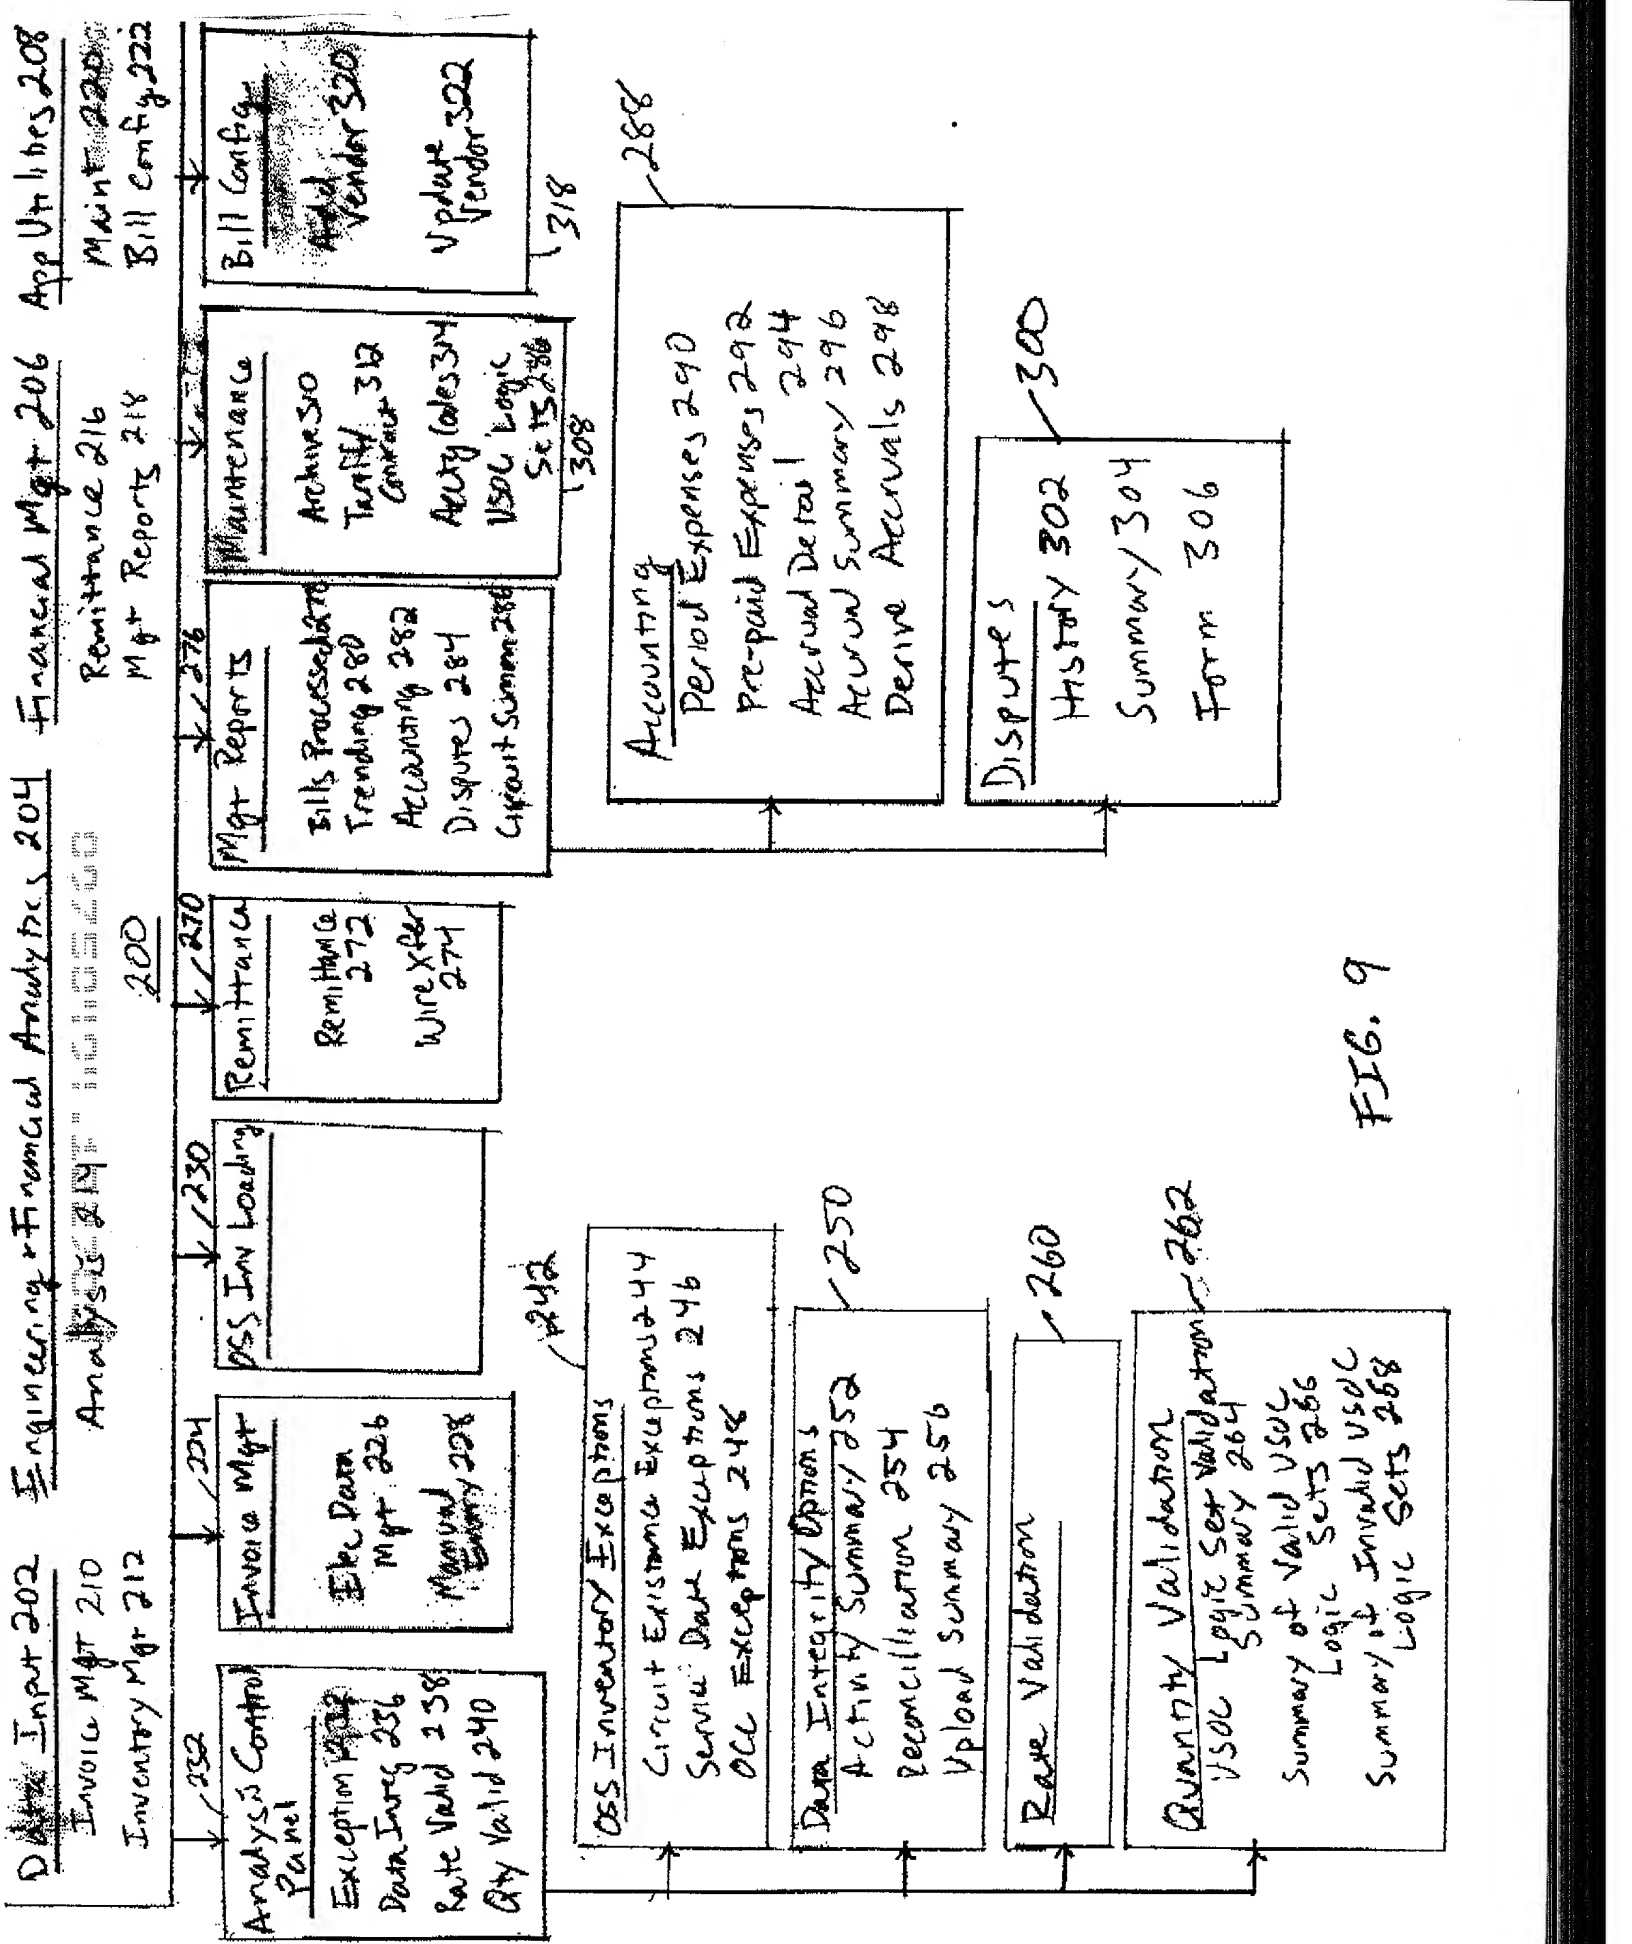 Data Input 202
Invoice Mgt 210
Inventory Mgt 212
Engineering + Financial Analytics 204
Analysis 214
Financial Mgt 206
Remittance 216
Mgt Reports 218
App Utilities 208
Maint 220
Bill Config 222
200
232
Analysis Control
Panel
Exception
Data Integ 236
Rate Valid 238
Qty Valid 240
224
Invoice Mgt
Elec Data
Mgt 226
Manual
Entry 228
230
OSS Inv Loading
270
Remittance
Remittance
272
Wire Xfer
274
276
Mgt Reports
Bills Processed 278
Trending 280
Accounting 282
Disputes 284
Circuit Summ 286
Maintenance
Archive 310
Tariff/
Contract 312
Acctg Codes 314
USOC Logic
Sets
308
Bill Config
Add
Vendor 320
Update
Vendor 322
318
242
OSS Inventory Exceptions
Circuit Existance Exceptions 244
Service Date Exceptions 246
OCC Exceptions 248
250
Data Integrity Options
Activity Summary 252
Reconciliation 254
Upload Summary 256
260
Rate Validation
262
Quantity Validation
USOC Logic Set Validation
Summary 264
Summary of Valid USOC
Logic Sets 266
Summary of Invalid USOC
Logic Sets 268
288
Accounting
Period Expenses 290
Pre-paid Expenses 292
Accrual Detail 294
Accrual Summary 296
Derive Accruals 298
300
Disputes
History 302
Summary 304
Form 306
FIG. 9